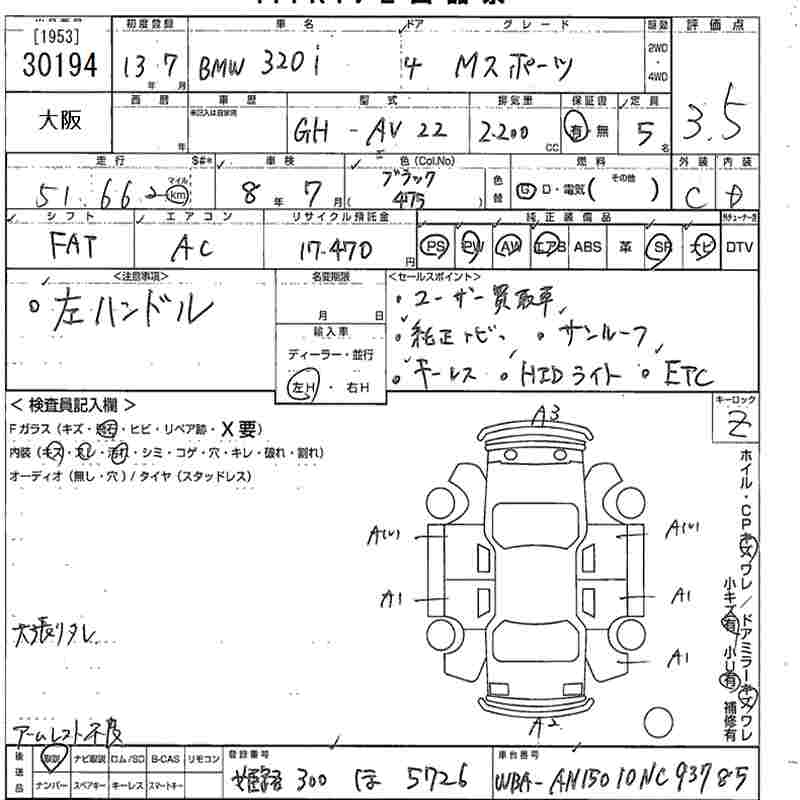 [1953]
30194
大阪
初度登録 車名 ドア グレード 駆動 評価点
13 年 7 月 BMW 320i 4 Mスポーツ 2WD・4WD 3.5
西暦 車歴 型式 排気量 保証書 定員
年 未記入は自家用 GH - AV22 2.200 CC 有・無 5 名
走行 S#* 車検 色(Col.No) 燃料 外装 内装
51.662 マイル km 8 年 7 月 ブラック (475) 色替 G・D・電気( その他 ) C D
シフト エアコン リサイクル預託金 純正装備品
FAT AC 17.470 円 PS PW AW エアB ABS 革 SR ナビ DTV
<注意事項>
○左ハンドル
名変期限
月 日
輸入車
ディーラー・並行
左H・右H
<セールスポイント>
・ユーザー買取車
・純正ナビ ・サンルーフ
・キーレス ○HIDライト ○ETC
<検査員記入欄>
Fガラス(キズ・飛石・ヒビ・リペア跡・X要)
内装(キズ・スレ・汚れ・シミ・コゲ・穴・キレ・破れ・割れ)
オーディオ(無し・穴)/タイヤ(スタッドレス)
キーロック
Z
A3
A(U) A(U)
A1 A1
A1
A2
ホイル・CPキズワレ/ドアミラーキズワレ
小キズ有 小U有 補修有
天張りタレ
アームレスト不良
後送品 取説 ナビ取説 ロム/SD B-CAS リモコン
ナンバー スペアキー キーレス スマートキー
登録番号
姫路 300 ほ 5726
車台番号
WBA-AN15010NC93785